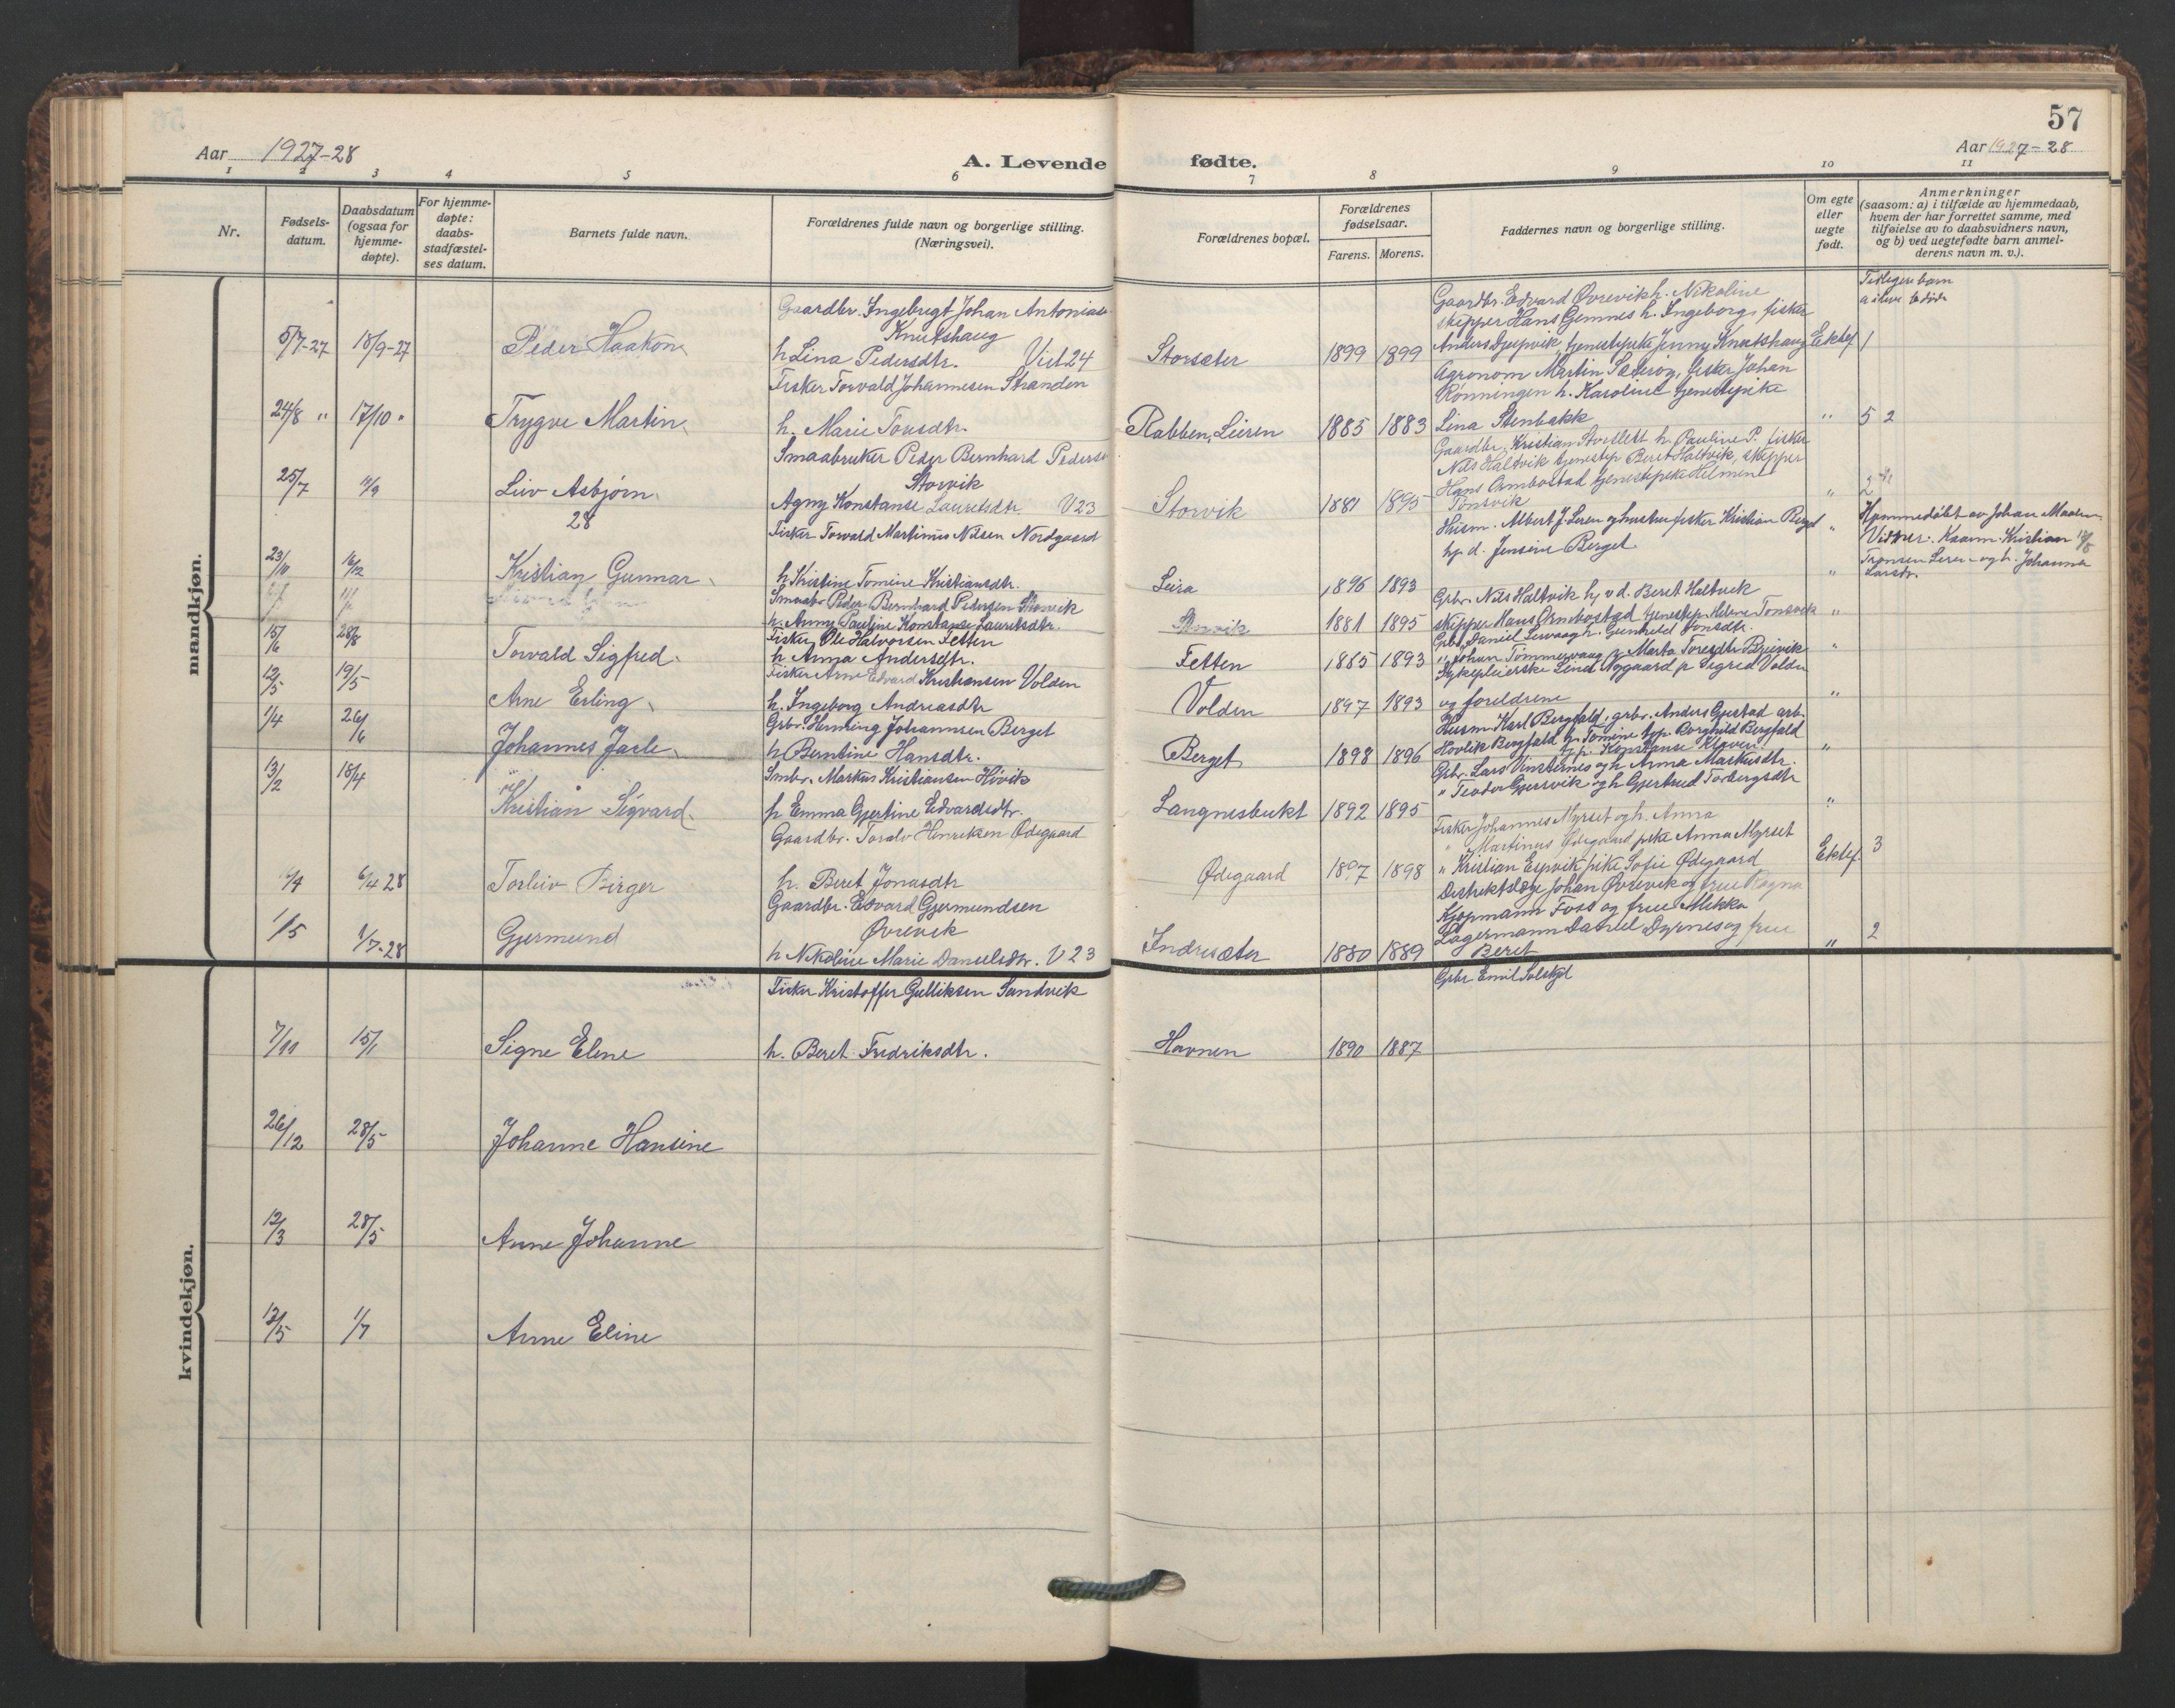 57
Aar 1927-28
A. Levende fødte.
Aar 1927-28
1 2 3 4 5 6 7 8 9 10 11
Nr.
Fødsels-
datum.
Daabsdatum
(ogsaa for
hjemme-
døpte).
For hjemme-
døpte:
daabs-
stadfæstel-
ses datum.
Barnets fulde navn.
Forældrenes fulde navn og borgerlige stilling.
(Næringsvei).
Forældrenes bopæl.
Forældrenes
fødselsaar.
Farens. Morens.
Faddernes navn og borgerlige stilling.
Om egte
eller
uegte
født.
Anmerkninger
(saasom: a) i tilfælde av hjemmedaab,
hvem der har forrettet samme, med
tilføielse av to daabsvidners navn,
og b) ved uegtefødte barn anmel-
derens navn m. v.).
mandkjøn.
5/7-27 18/9-27 Peder Haakon
Gaardbr. Ingebrigt Johan Antonsen
Knutshaug
h. Lina Pedersdtr. Viet 24
Storsæter 1899 1899
Gaardbr. Edvard Øvrevik h. Nikoline
skipper Hans Gemnes h. Ingeborg, fisker
Anders Djupvik, tjenestepike Jenny Knutshaug
Ektef
Tidligere barn
1
24/8 " 17/10 " Trygve Martin
Fisker Torvald Johannesen Stranden
h. Marie Tomsdtr.
Rabben, Leiren 1885 1883
Agronom Martin Sæterøy, fisker Johan
Rønningen h. Karoline tjenestepike
Lina Stenbakk
" 5 2
25/7 11/9 Liv Asbjørn
28
Smaabruker Peder Bernhard Pedersen
Storvik
Agny Konstanse Lauretsdtr. V23
Storvik 1881 1895
Gaardbr. Kristian Storslett h. Pauline P. fisker
Nils Haltvik tjenestep Beret Haltvik, skipper
Hans Ormbostad tjenestepike Helmine
Tonsvik
" 2
23/10 16/12 Kristian Gunnar
Fisker Torvald Martinus Nilsen Nordgaard
h. Kristine Tomine Kristiansdtr.
Leira 1896 1893
Husm. Albert J. Leren og hustru fisker Kristian Berget
hj. d. Jensine Berget
"
Hjemmedøbt av Johan Maalen
Vidner. Kaarm. Kristian
Tronsen Leren og h. Johanna
Larsdr.
Smaabr Peder Bernhard Pedersen Storvik
h. Anny Pauline Konstanse Lauretsdtr.
Storvik 1881 1895
Grbr. Nils Haltvik hj v d. Beret Haltvik
skipper Hans Ormbostad tjenestep. Helene Tonsvik
"
15/6 28/8 Torvald Sigfred
Fisker Ole Halvorsen Fetten
h. Anna Andersdtr.
Fetten 1885 1893
Grbr. Daniel Lervaag h. Gunhild Jonsdtr.
" Johan Tømmervaag p. Marta Toresdtr Breivik
"
12/5 19/5 Arne Erling
Fisker Arne Edvard Kristiansen Volden
h. Ingeborg Andreasdtr
Volden 1897 1893
Sykepleierske Lina Nygaard p Sigred Volden
og foreldrene
"
1/4 26/6 Johannes Jarle
Grbr. Henning Johannsen Berget
h. Berntine Hansdtr.
Berget 1898 1896
Husm Karl Bergfald, grbr. Anders Gjestad arb.
Hovlik Bergfald h. Tomine tjp Borghild Bergfald
tj p. Konstanse Kløven
"
13/2 18/4 Kristian Sigvard
Smbr. Markus Kristiansen Hivik
h Emma Gjertine Edvardsdtr.
Langnesbukt 1892 1895
Grbr. Lars Vinsternes og h Anna Markusdtr.
" Teodor Gjersvik og h Gjertrud Torbergsdtr
"
6/4 28 Torleiv Birger
Gaardbr. Toralv Henriksen Ødegaard
h. Beret Jonasdtr
Ødegaard 1897 1898
Fisker Johannes Myrset og h. Anna
" Martinus Ødegaard pike Anna Myrset
" Kristian Espvik pike Sofie Ødegaard
Ektef 3
1/5 1/7-28 Gjermund
Gaardbr. Edvard Gjermundsen
Øvrevik
h Nikoline Marie Danielsdtr. V23
Indresæter 1880 1889
Distriktslæge Johan Øvrevik og frue Ragna
Kjøpmann Foss og frue Mekka
Lagermann Daniel Dyrnes og frue
Beret
" 2
kvindekjøn.
7/11 15/1 Signe Eline
Fisker Kristoffer Gulliksen Sandvik
h. Beret Fredriksdtr.
Havnen 1890 1887
Grbr Emil Solskjel
26/12 28/5 Johanne Hansine
12/3 28/5 Anne Johanne
13/5 1/7 Anne Eline